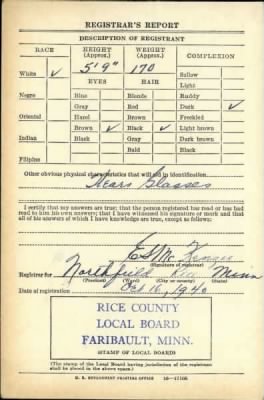 REGISTRAR'S REPORT
DESCRIPTION OF REGISTRANT
RACE HEIGHT (Approx.) WEIGHT (Approx.) COMPLEXION
5' 9" 170
Sallow
White ✓ Light
EYES HAIR
Negro Blue Blonde Ruddy
Gray Red Dark ✓
Oriental Hazel Brown Freckled
Brown ✓ Black ✓ Light brown
Indian Black Gray Dark brown
Bald Black
Filipino
Other obvious physical characteristics that will aid in identification
Wears Glasses
I certify that my answers are true; that the person registered has read or has
had read to him his own answers; that I have witnessed his signature or mark and that
all of his answers of which I have knowledge are true, except as follows:
(Signature of registrar)
Registrar for Northfield Rice Minn
(Precinct) (Ward) (City or county) (State)
Date of registration Oct 16, 1940
RICE COUNTY
LOCAL BOARD
FARIBAULT, MINN.
(STAMP OF LOCAL BOARD)
(The stamp of the Local Board having jurisdiction of the registrant
shall be placed in the above space.)
U. S. GOVERNMENT PRINTING OFFICE